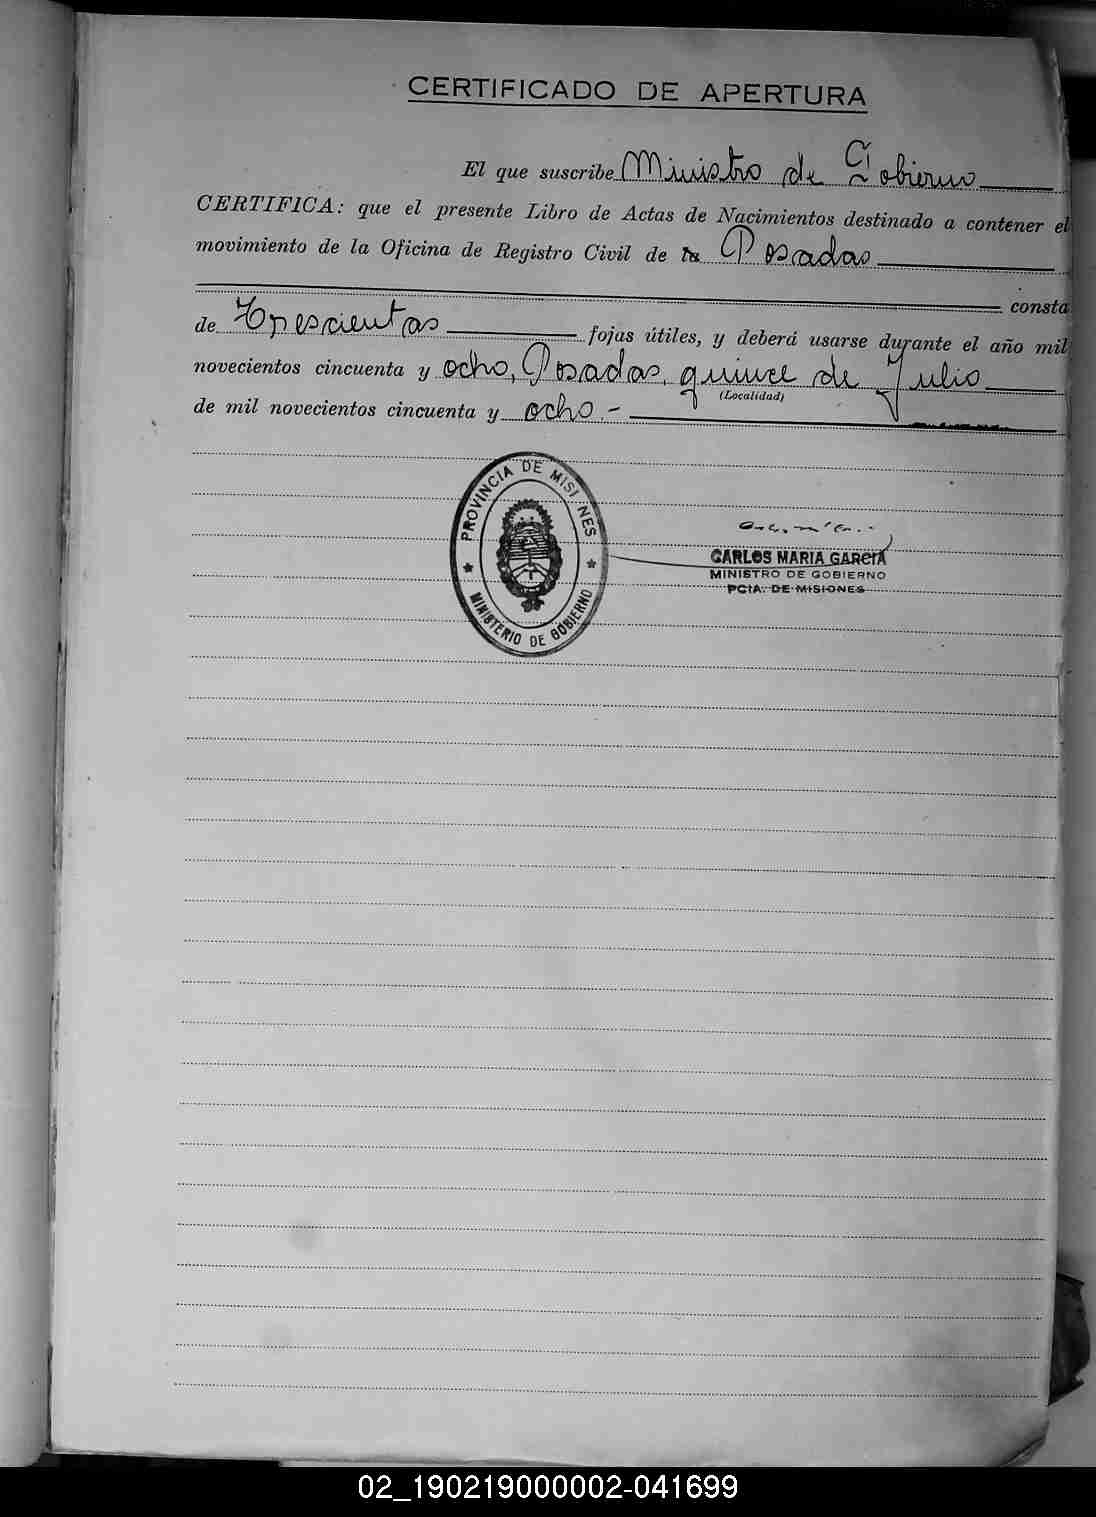 CERTIFICADO DE APERTURA
El que suscribe Ministro de Gobierno
CERTIFICA: que el presente Libro de Actas de Nacimientos destinado a contener el
movimiento de la Oficina de Registro Civil de la Posadas
consta
de Trescientas fojas útiles, y deberá usarse durante el año mil
novecientos cincuenta y ocho, Posadas, quince de Julio
(Localidad)
de mil novecientos cincuenta y ocho.-
PROVINCIA DE MISIONES
MINISTERIO DE GOBIERNO
CARLOS MARIA GARCIA
MINISTRO DE GOBIERNO
PCIA. DE MISIONES
02_190219000002-041699